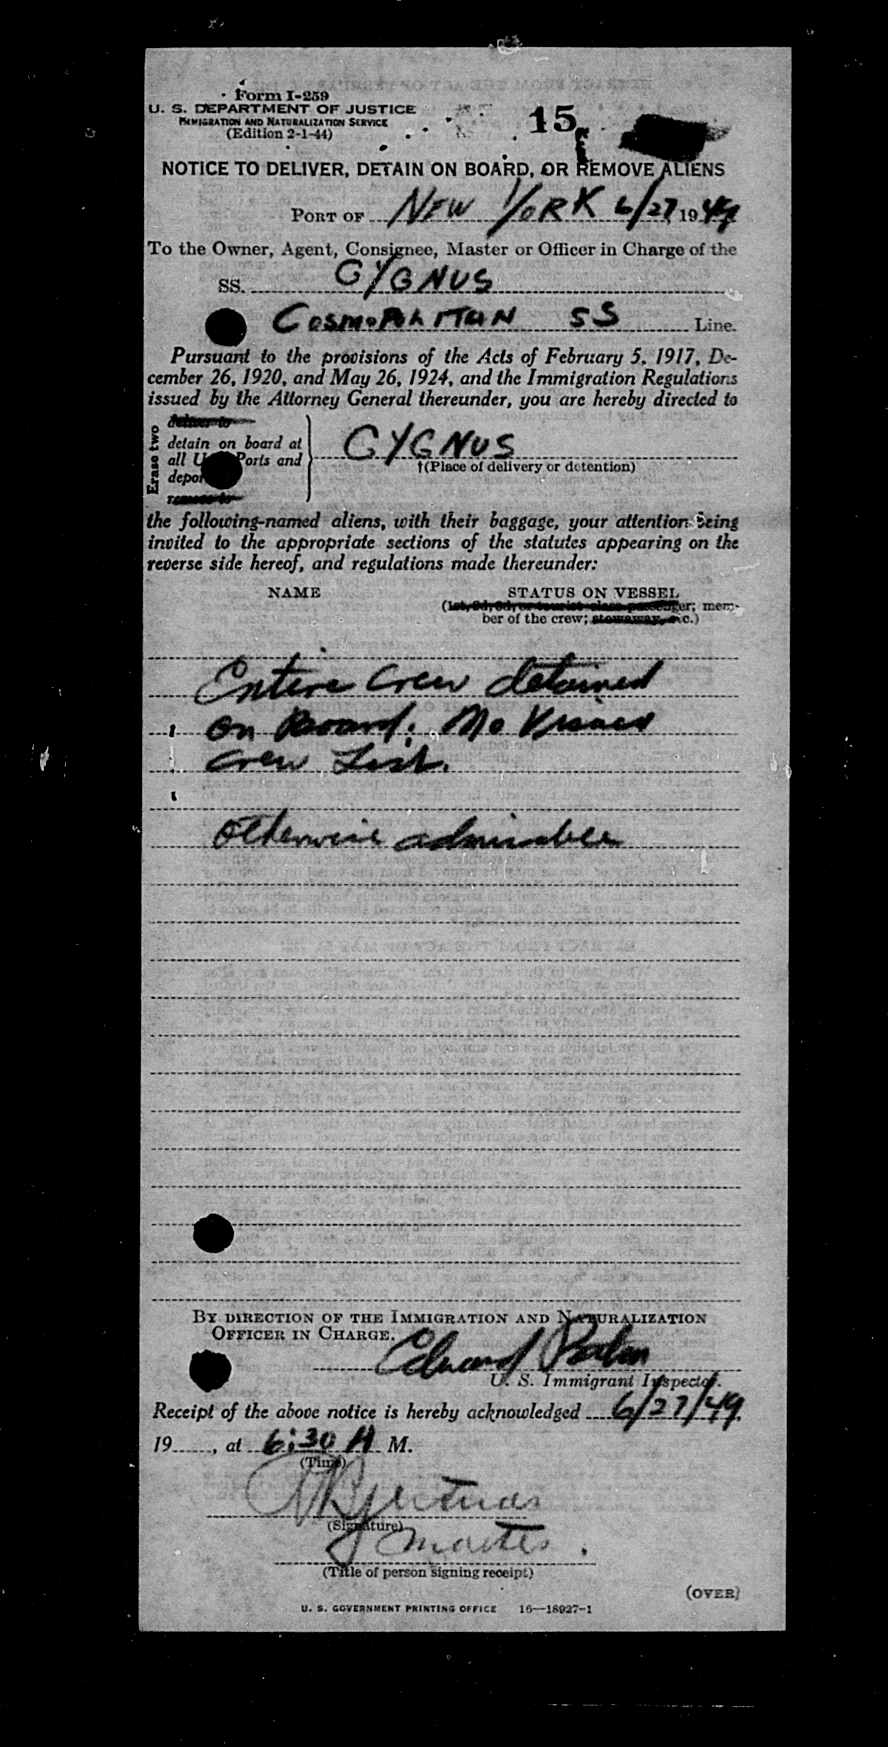 Form I-259
U. S. DEPARTMENT OF JUSTICE
IMMIGRATION AND NATURALIZATION SERVICE
(Edition 2-1-44)
15
NOTICE TO DELIVER, DETAIN ON BOARD, OR REMOVE ALIENS
PORT OF NEW YORK 6/27, 1949
To the Owner, Agent, Consignee, Master or Officer in Charge of the
SS. CYGNUS
COSMOPOLITAN SS Line.
Pursuant to the provisions of the Acts of February 5, 1917, De-
cember 26, 1920, and May 26, 1924, and the Immigration Regulations
issued by the Attorney General thereunder, you are hereby directed to
Erase two
deliver to
detain on board at
all U Ports and
depor
remove to
CYGNUS
†(Place of delivery or detention)
the following-named aliens, with their baggage, your attention being
invited to the appropriate sections of the statutes appearing on the
reverse side hereof, and regulations made thereunder:
NAME STATUS ON VESSEL
(1st, 2d, 3d, or tourist class passenger; mem-
ber of the crew; stowaway, etc.)
Entire crew detained
on Board. No Visaed
crew List.
Otherwise admissible
BY DIRECTION OF THE IMMIGRATION AND NATURALIZATION
OFFICER IN CHARGE.
Edward
U. S. Immigrant Inspector.
Receipt of the above notice is hereby acknowledged 6/27/49,
19 , at 6:30 A M.
(Time)
(Signature)
(Title of person signing receipt)
(OVER)
U. S. GOVERNMENT PRINTING OFFICE 16—18927-1